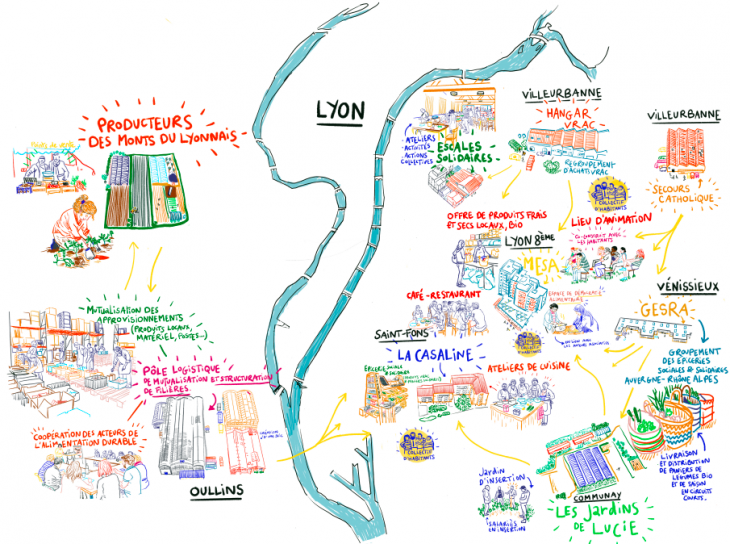 PRODUCTEURS
DES MONTS DU LYONNAIS
MUTUALISATION DES
APPROVISIONNEMENTS
(PRODUITS LOCAUX,
MATÉRIEL, POSTES...)
PÔLE LOGISTIQUE
DE MUTUALISATION ET STRUCTURATION
DE FILIÈRES.
COOPÉRATION DES ACTEURS DE
L'ALIMENTATION DURABLE
OULLINS
LYON
- ATELIERS
- ACTIVITÉS
- ACTIONS
COLLECTIVES
ESCALES
SOLIDAIRES
VILLEURBANNE
HANGAR
VRAC
REGROUPEMENT
D'ACHAT VRAC
VILLEURBANNE
SECOURS
CATHOLIQUE
1 COLLECTIF
D'HABITANTS
OFFRE DE PRODUITS FRAIS
ET SECS LOCAUX, BIO
LYON 8ÈME
MESA
LIEU D'ANIMATION
CO-CONSTRUIT AVEC
LES HABITANTS
CAFÉ-RESTAURANT
1 COLLECTIF
D'HABITANTS
VÉNISSIEUX
GESRA
GROUPEMENT
DES ÉPICERIES
SOCIALES & SOLIDAIRES
AUVERGNE-RHÔNE ALPES
SAINT-FONS
LA CASALINE
ÉPICERIE SOCIALE
& SOLIDAIRE
1 COLLECTIF
D'HABITANTS
ATELIERS DE CUISINE
JARDIN
D'INSERTION
SALARIÉS
EN INSERTION
COMMUNAY
LES JARDINS
DE LUCIE
LIVRAISON
ET DISTRIBUTION
DE PANIERS DE
LÉGUMES BIO
ET DE SAISON
EN CIRCUITS
COURTS.